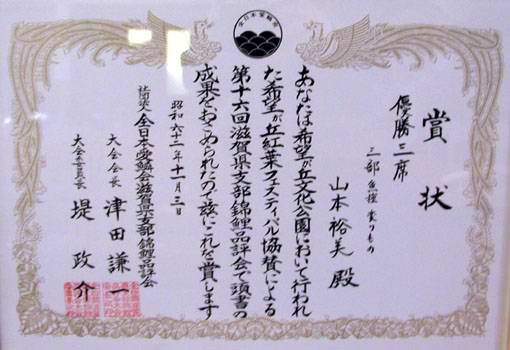 賞状
優勝三席
三部魚種 変りもの
山本裕美殿
あなたは希望が丘文化公園において行われ
た希望が丘紅葉フェスティバル協賛による
第十六回滋賀県支部錦鯉品評会で頭書の
成果をおさめられたので茲にこれを賞します
昭和六十二年十一月三日
社団法人 全日本愛鱗会滋賀県支部錦鯉品評会
大会会長 津田謙一
大会委員長 堤政介